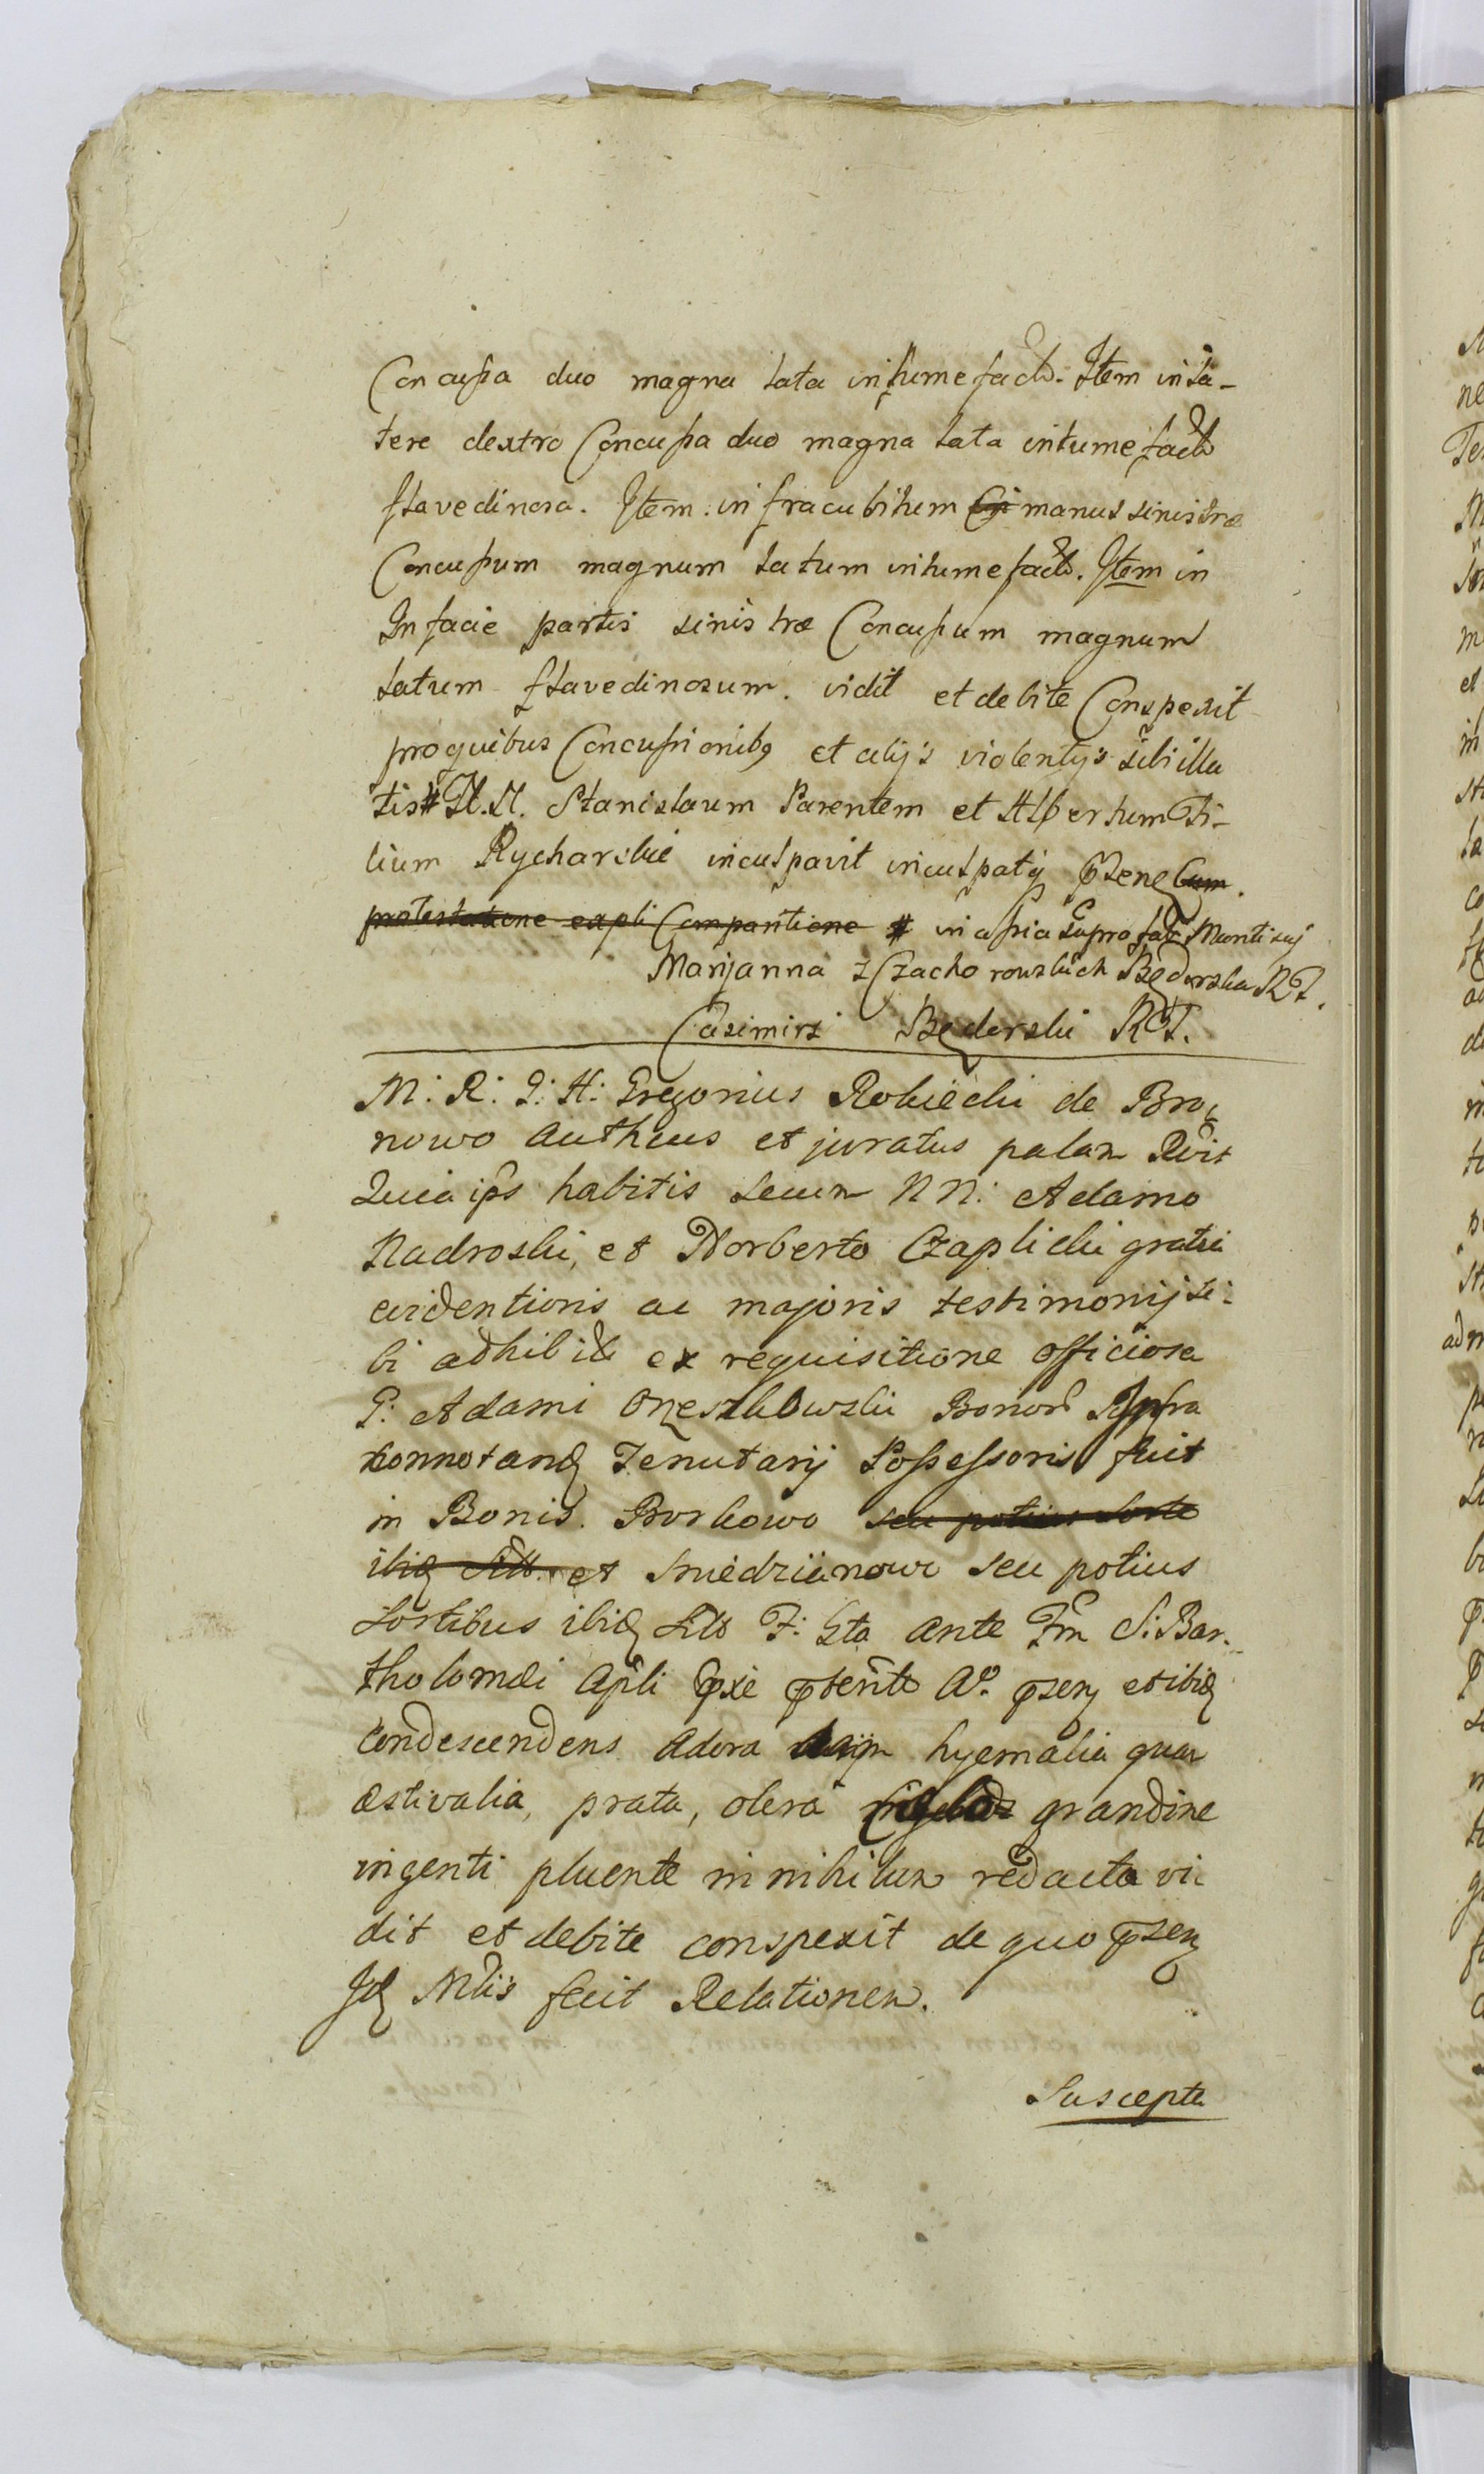 Concussa duo magna lata intumefacta. Item in la-
tere dextro Concussa duo magna lata intumefacta
flavedinosa. Item infracubitum manus sinistræ
Concussum magnum latum intumefactu. Item in
In facie partis sinistræ Concussum magnum
latum flavedinosum. vidit et debite Conspexit
pro quibus Concussionibq et alijs violentijs sibi illa
tis # N.N. Stanislaum Parentem et Albertum Fi-
lium Rycharskie inculpavit
protestatione expli Comparitione #
Marijanna z Czachorowskich Będorska RT.
Casimirz Będorski RT.
M: R: J: H: Gregorius Robiecki de Bro-
nowo authcus et juratus palam Rvit
Quia ips habitis secum NN: Adamo
Nadroski, et Norberto Czaplicki gratia
evidentioris ac majoris testimonij si-
bi adhibit ex requisitione officiosa
G: Adami Orzeszkowski Bonor Infra
connotand Tenutarij Possessoris fuit
in Bonis Borkowo seu potius sorte
ibiq sitt. et Sniedziianowo seu potius
Sortibus ibiq sitt F: 6ta ante Fm S: Bar-
tholomæi Apli pxe pterite Ao. psen et ibiq
Condescendens adora hyemalia quam
æstivalia, prata, olera grandine
ingenti pluente in nihilum redacta vi
dit et debite conspexit de quo psen
Id Mlis fecit Relationem.
Suscepta